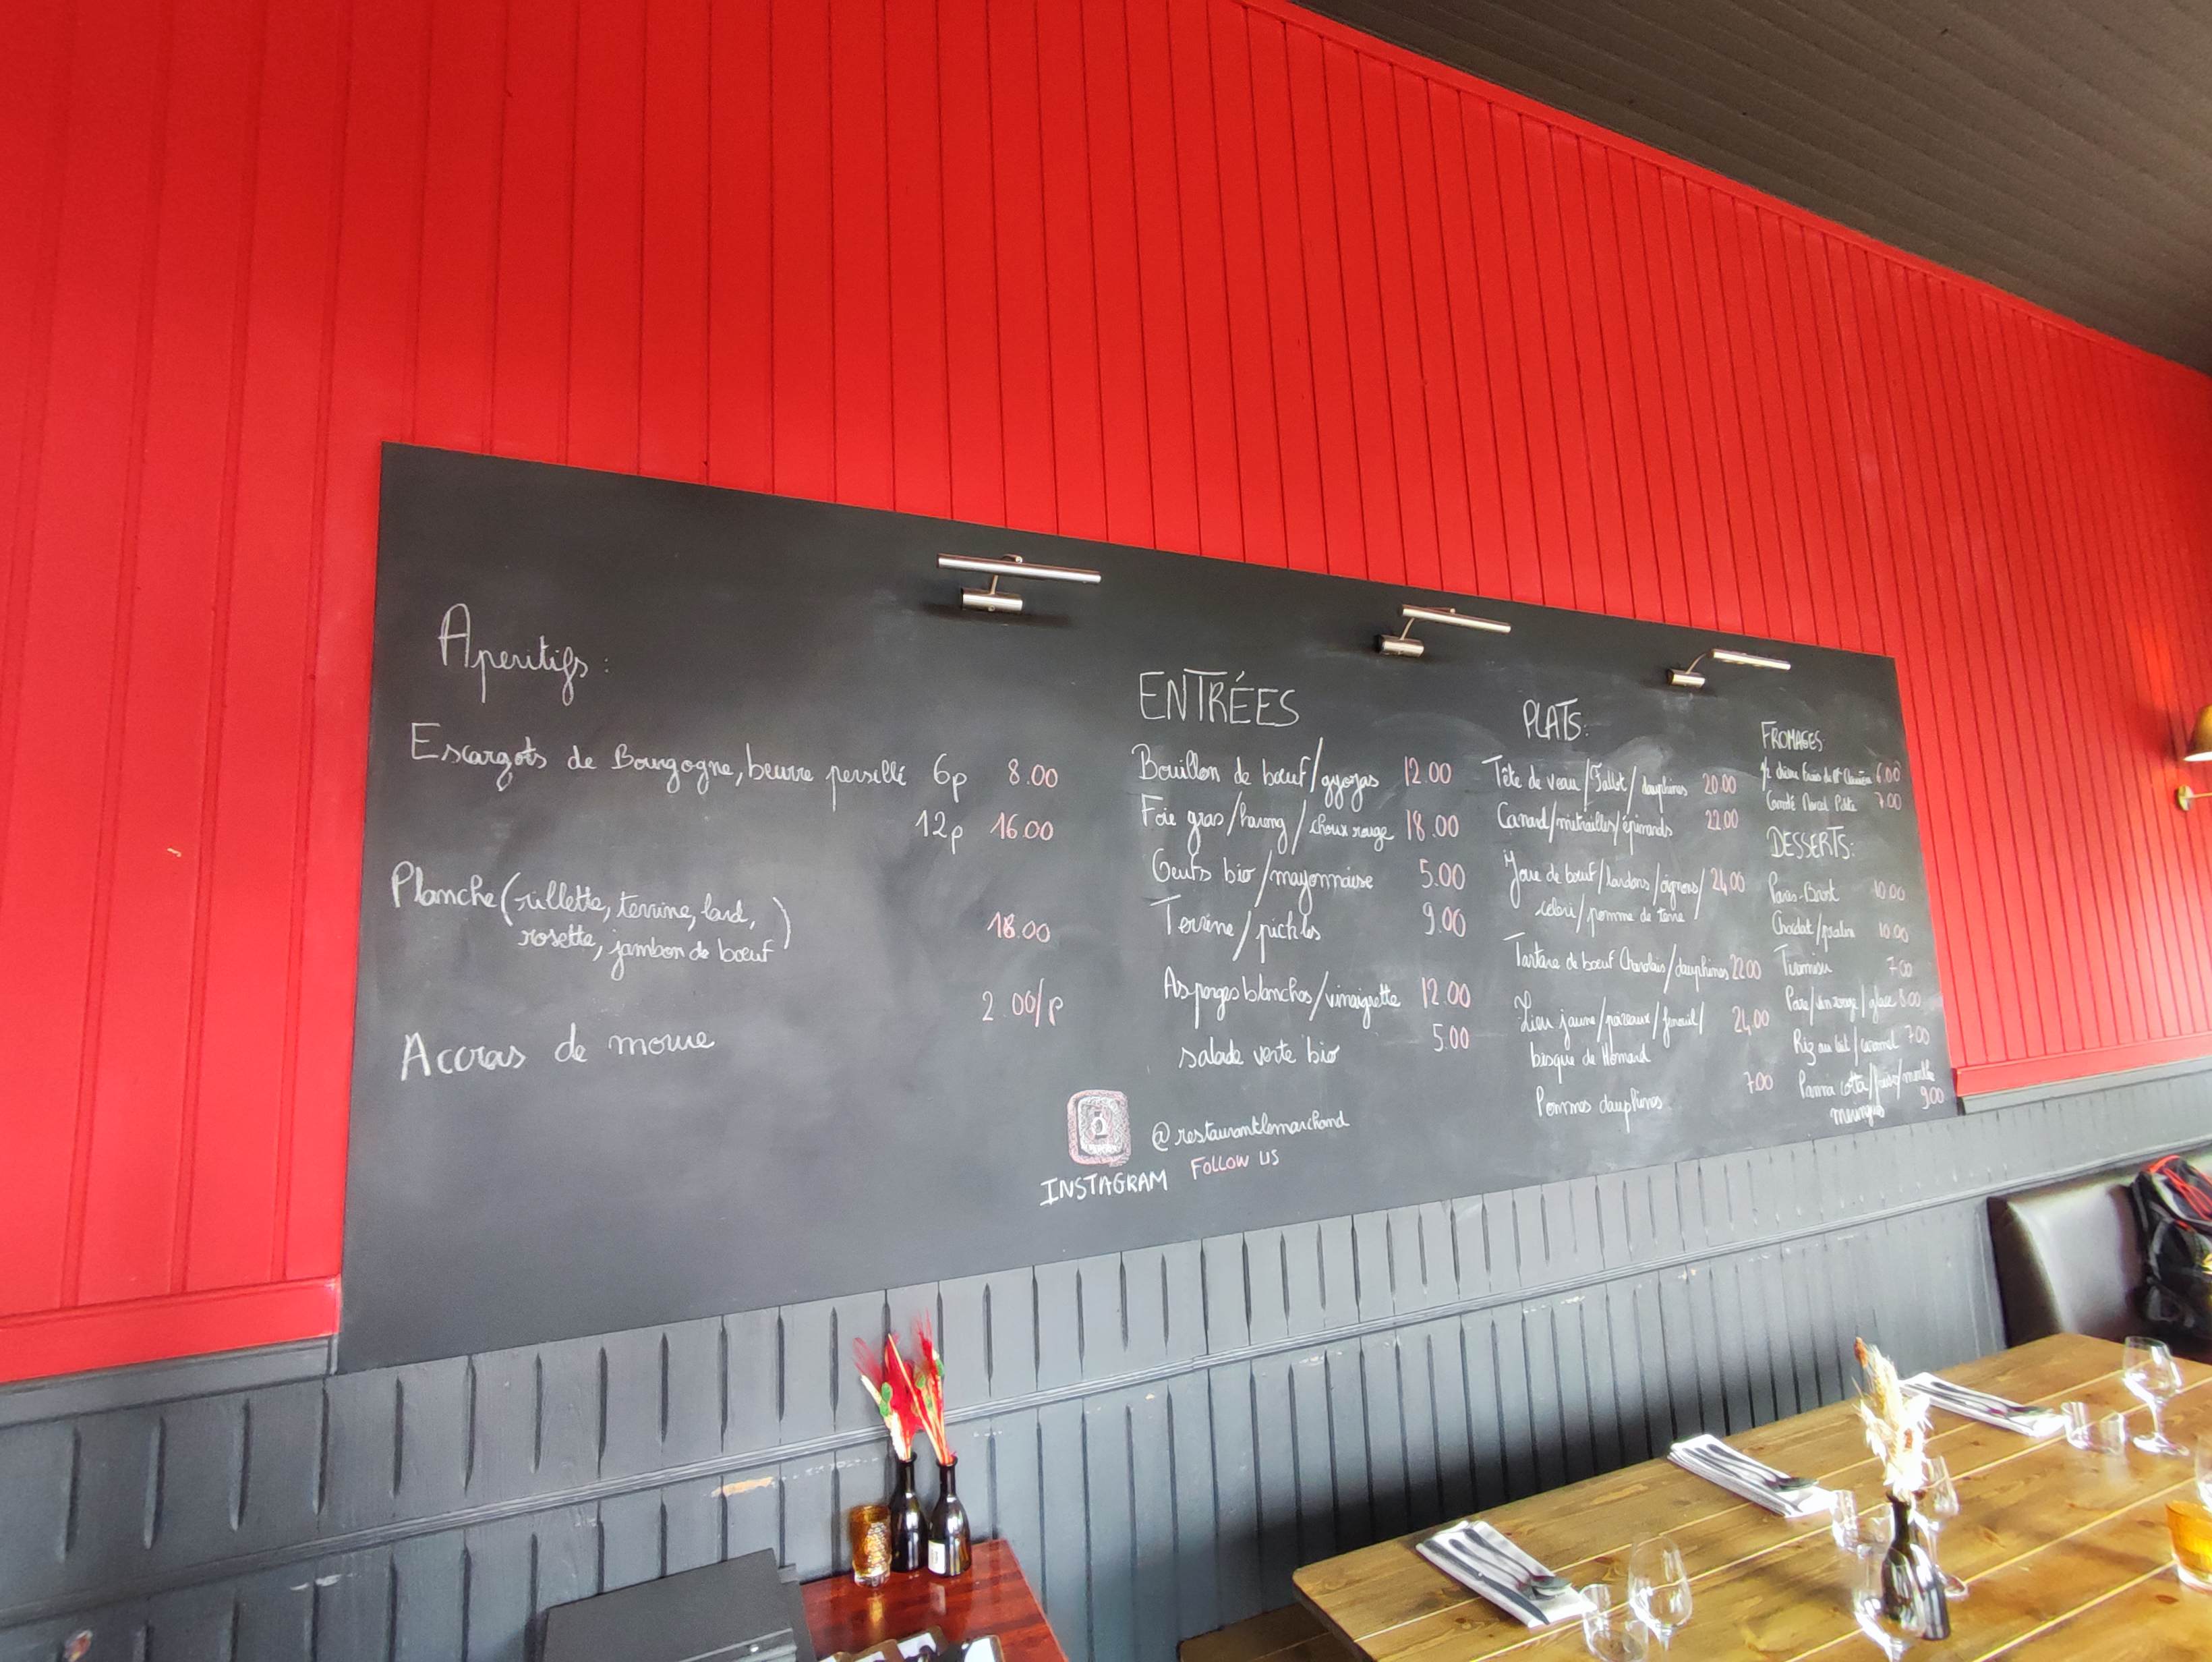 Aperitifs :
Escargots de Bourgogne, beurre persillé 6p 8.00
12p 16.00
Planche (rillette, terrine, lard,
rosette, jambon de bœuf) 18.00
2.00/p
Accras de morue
ENTRÉES
Bouillon de bœuf/gyozas 12.00
Foie gras/hareng/choux rouge 18.00
Oeufs bio/mayonnaise 5.00
Terrine/pickles 9.00
Asperges blanches/vinaigrette 12.00
salade verte bio 5.00
@restaurantlemarchand
INSTAGRAM FOLLOW US
PLATS:
Tête de veau/Fallot/dauphines 20.00
Canard/mitrailles/épinards 22.00
Joue de bœuf/lardons/oignons/ 24,00
céleri/pomme de terre
Tartare de bœuf Charolais/dauphines 22.00
Lieu jaune/poireaux/fenouil/ 24,00
bisque de Homard
Pommes dauphines 7.00
FROMAGES:
1/2 6.00
Comté Marcel Petite 7.00
DESSERTS:
Paris-Brest 10.00
Chocolat/praliné 10.00
Tiramisu 7.00
Poire/vin rouge/glace 8.00
Riz au lait/caramel 7.00
Panna cotta/fraise/menthe
meringue 9.00